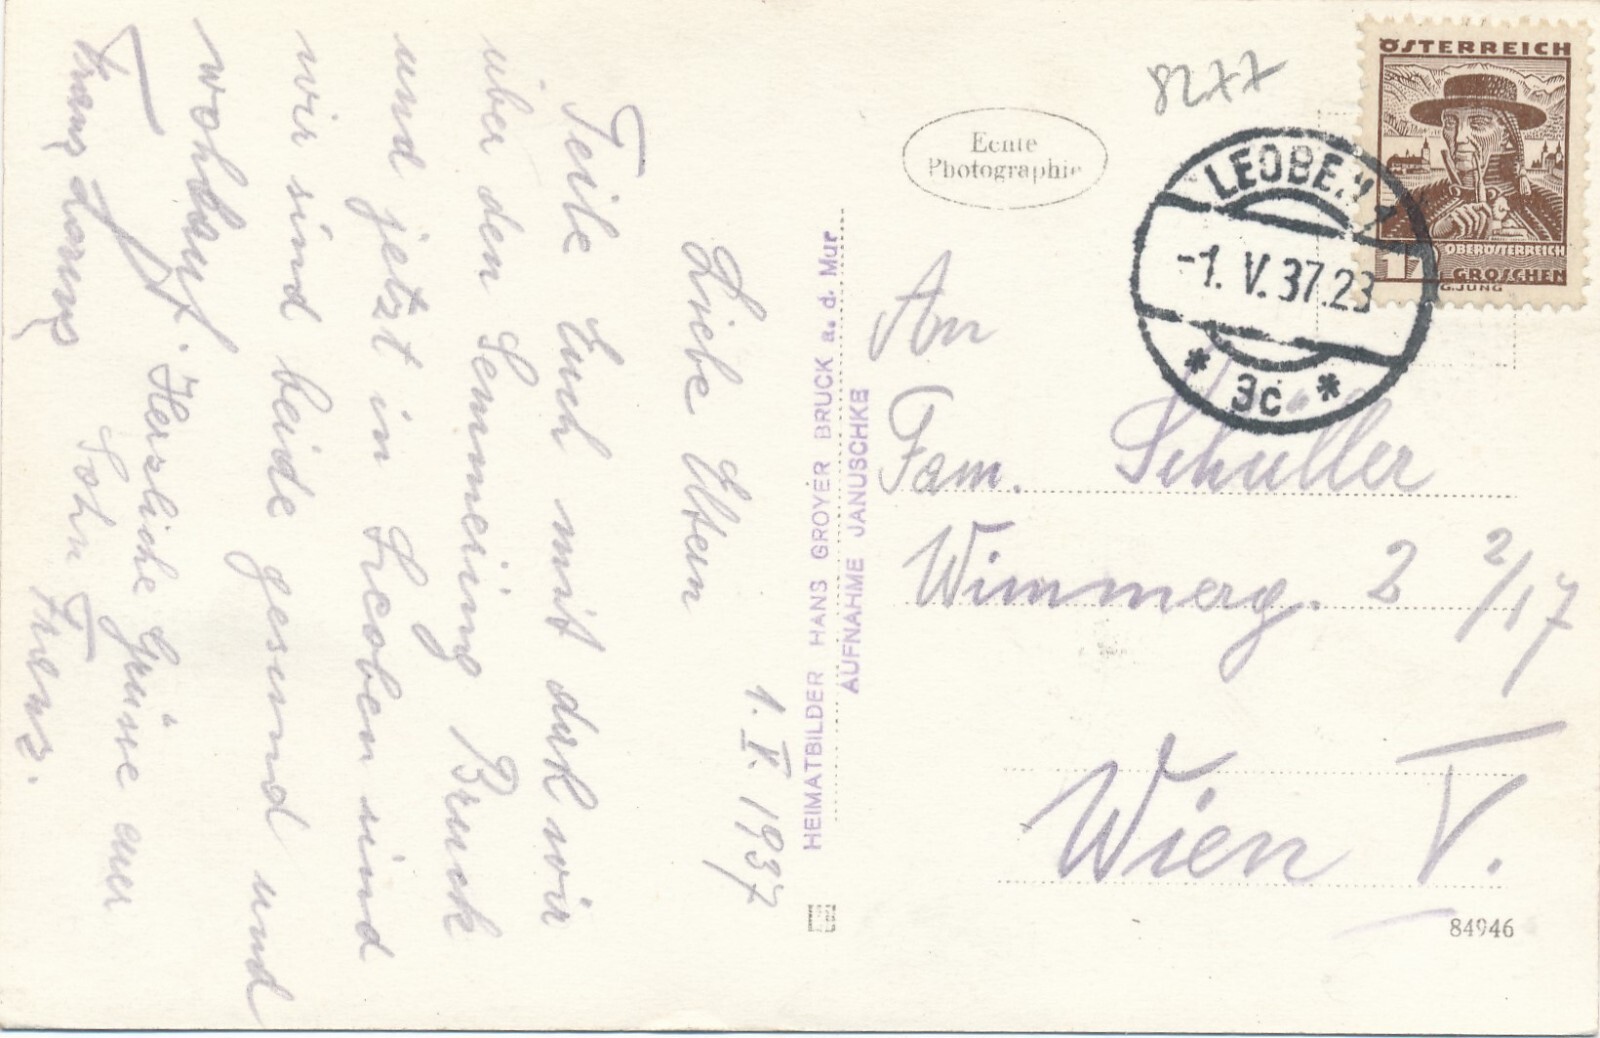 1. V. 1937
Liebe Eltern
Teile Euch mit das wir
über den Semmeing Bruck
und jetzt in Leoben sind
wir sind beide gesund und
wohlauf. Herzliche Grüße euer
Sohn Franz.
HEIMATBILDER HANS GROYER BRUCK a. d. Mur
AUFNAHME JANUSCHKE
Echte
Photographie
8277
ÖSTERREICH
OBERÖSTERREICH
GROSCHEN
G.JUNG
LEOBEN 1
-1. V. 37.23
* 3c *
An
Fam. Schuller
Wimmerg. 2 2/17
Wien V.
84946